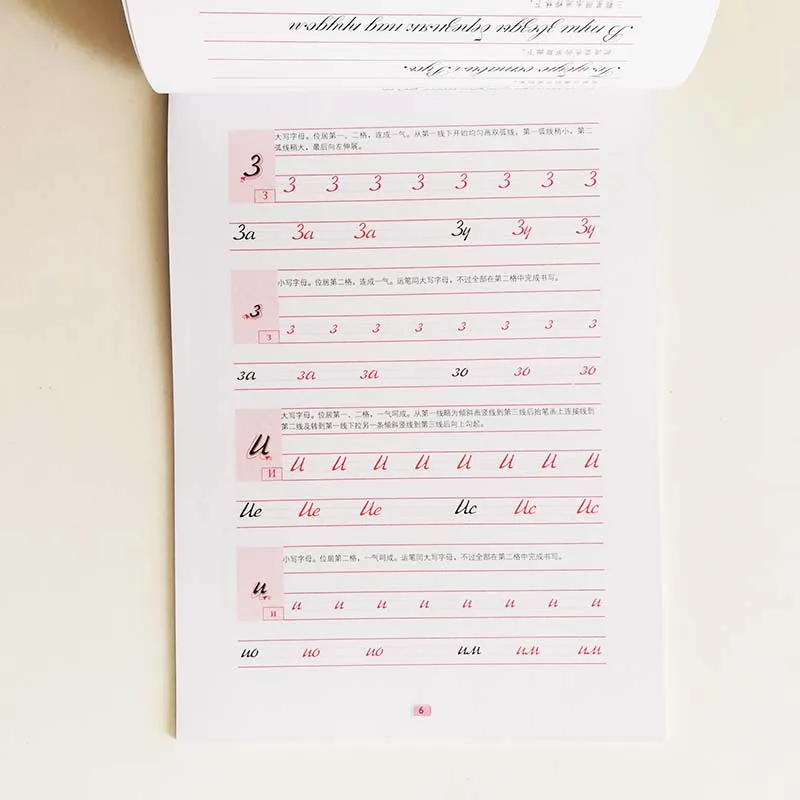 大写字母。位居第一、二格，连成一气。从第一线下开始均匀画双弧线，第一弧线稍小，第二
弧线稍大，最后向左伸展。
З
З З З З З З З З З
За За За Зу Зу Зу
小写字母。位居第二格，连成一气。运笔同大写字母，不过全部在第二格中完成书写。
з
з з з з з з з з з
за за за зо зо зо
大写字母。位居第一、二格，一气呵成。从第一线略为倾斜画竖线到第三线后抬笔画上连接线到
第二线及转到第一线下拉另一条倾斜竖线到第三线后向上勾起。
И
И И И И И И И И И
Ие Ие Ие Ис Ис Ис
小写字母。位居第二格，一气呵成。运笔同大写字母，不过全部在第二格中完成书写。
и
и и и и и и и и и
ио ио ио им им им
6